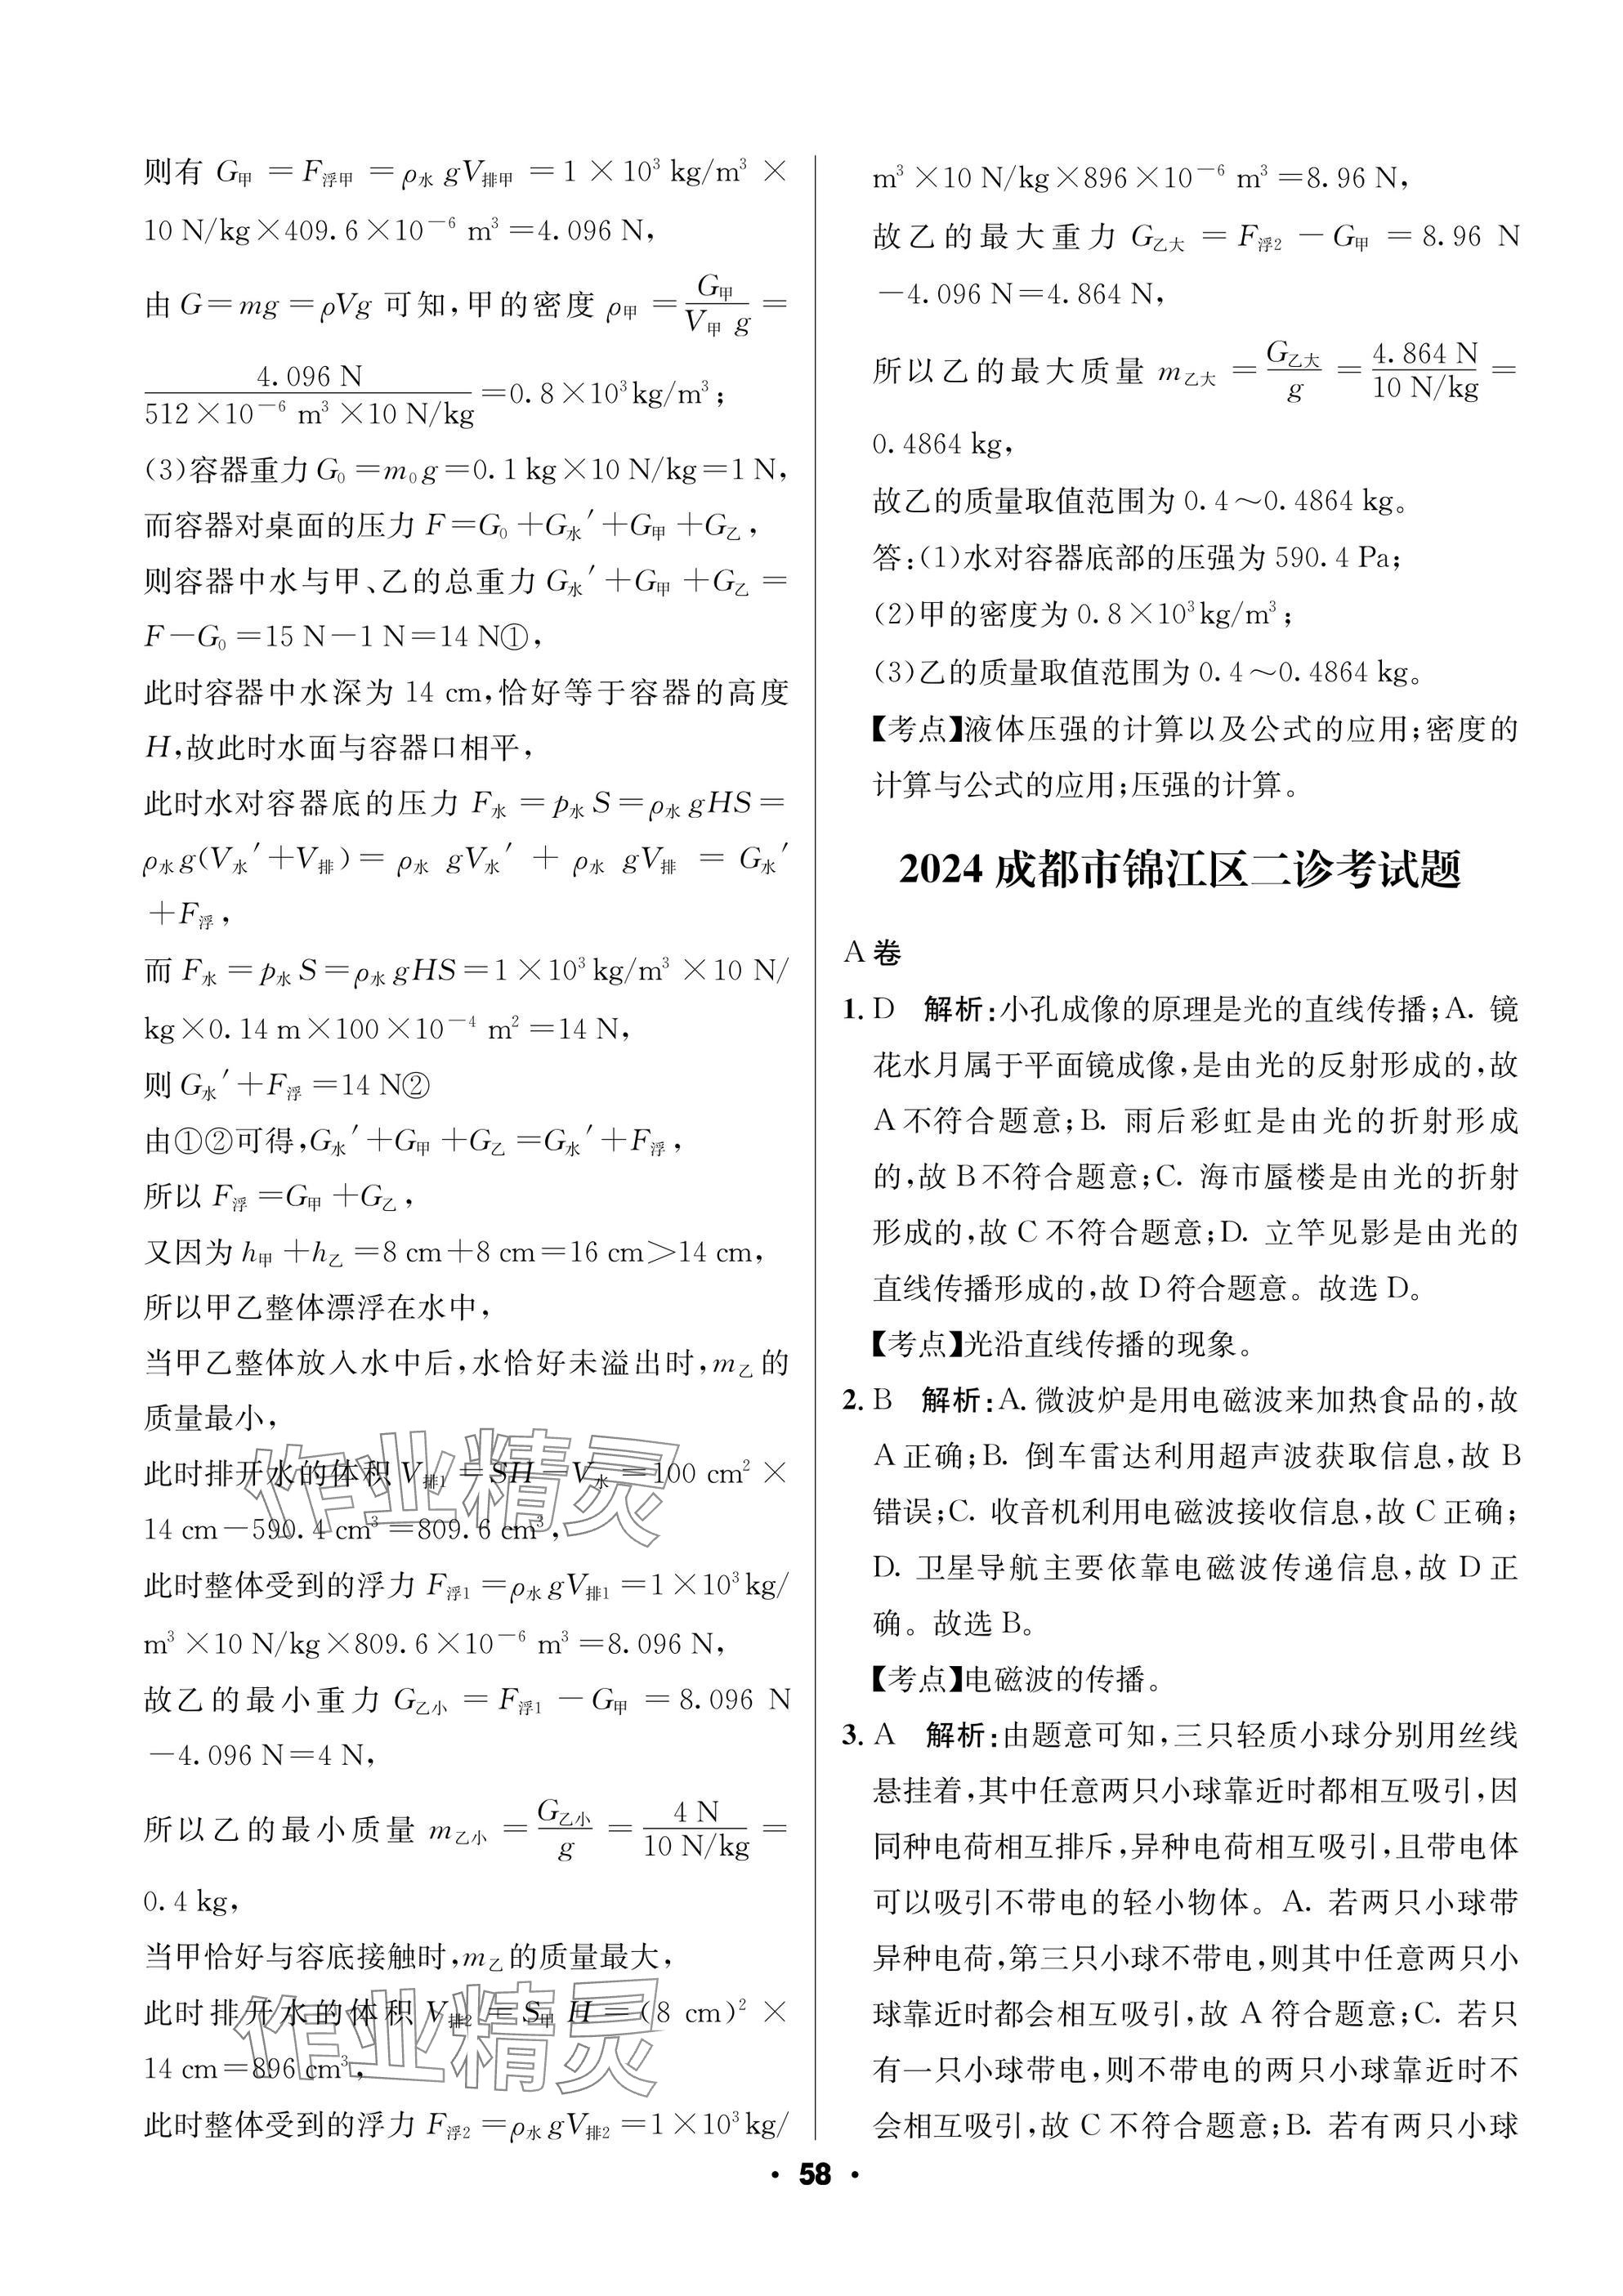 则有 G甲 = F浮甲 = ρ水 gV排甲 = 1 × 10³ kg/m³ ×
10 N/kg×409.6×10⁻⁶ m³=4.096 N,
由 G=mg=ρVg 可知,甲的密度 ρ甲 = G甲/(V甲 g) =
4.096 N/(512×10⁻⁶ m³×10 N/kg) =0.8×10³kg/m³;
(3)容器重力 G₀=m₀g=0.1 kg×10 N/kg=1 N,
而容器对桌面的压力 F=G₀+G水′+G甲+G乙,
则容器中水与甲、乙的总重力 G水′+G甲+G乙=
F-G₀=15 N-1 N=14 N①,
此时容器中水深为 14 cm,恰好等于容器的高度
H,故此时水面与容器口相平,
此时水对容器底的压力 F水=p水S=ρ水gHS=
ρ水g(V水′+V排)= ρ水 gV水′ + ρ水 gV排 = G水′
+F浮,
而 F水=p水S=ρ水gHS=1×10³kg/m³×10 N/
kg×0.14 m×100×10⁻⁴ m²=14 N,
则 G水′+F浮=14 N②
由①②可得,G水′+G甲+G乙=G水′+F浮,
所以 F浮=G甲+G乙,
又因为 h甲+h乙=8 cm+8 cm=16 cm>14 cm,
所以甲乙整体漂浮在水中,
当甲乙整体放入水中后,水恰好未溢出时,m乙的
质量最小,
此时排开水的体积 V排1=SH-V水=100 cm²×
14 cm-590.4 cm³=809.6 cm³,
此时整体受到的浮力 F浮1=ρ水gV排1=1×10³kg/
m³×10 N/kg×809.6×10⁻⁶ m³=8.096 N,
故乙的最小重力 G乙小 = F浮1 - G甲 = 8.096 N
-4.096 N=4 N,
所以乙的最小质量 m乙小 = G乙小/g = 4 N/(10 N/kg) =
0.4 kg,
当甲恰好与容底接触时,m乙的质量最大,
此时排开水的体积 V排2=S甲 H=(8 cm)²×
14 cm=896 cm³,
此时整体受到的浮力 F浮2=ρ水gV排2=1×10³kg/
m³×10 N/kg×896×10⁻⁶ m³=8.96 N,
故乙的最大重力 G乙大 = F浮2 - G甲 = 8.96 N
-4.096 N=4.864 N,
所以乙的最大质量 m乙大 = G乙大/g = 4.864 N/(10 N/kg) =
0.4864 kg,
故乙的质量取值范围为 0.4~0.4864 kg。
答:(1)水对容器底部的压强为 590.4 Pa;
(2)甲的密度为 0.8×10³kg/m³;
(3)乙的质量取值范围为 0.4~0.4864 kg。
【考点】液体压强的计算以及公式的应用;密度的
计算与公式的应用;压强的计算。
2024 成都市锦江区二诊考试题
A 卷
1. D 解析:小孔成像的原理是光的直线传播;A. 镜
花水月属于平面镜成像,是由光的反射形成的,故
A 不符合题意;B. 雨后彩虹是由光的折射形成
的,故 B 不符合题意;C. 海市蜃楼是由光的折射
形成的,故 C 不符合题意;D. 立竿见影是由光的
直线传播形成的,故 D 符合题意。故选 D。
【考点】光沿直线传播的现象。
2. B 解析:A. 微波炉是用电磁波来加热食品的,故
A 正确;B. 倒车雷达利用超声波获取信息,故 B
错误;C. 收音机利用电磁波接收信息,故 C 正确;
D. 卫星导航主要依靠电磁波传递信息,故 D 正
确。故选 B。
【考点】电磁波的传播。
3. A 解析:由题意可知,三只轻质小球分别用丝线
悬挂着,其中任意两只小球靠近时都相互吸引,因
同种电荷相互排斥,异种电荷相互吸引,且带电体
可以吸引不带电的轻小物体。A. 若两只小球带
异种电荷,第三只小球不带电,则其中任意两只小
球靠近时都会相互吸引,故 A 符合题意;C. 若只
有一只小球带电,则不带电的两只小球靠近时不
会相互吸引,故 C 不符合题意;B. 若有两只小球
· 58 ·
作业精灵
作业精灵